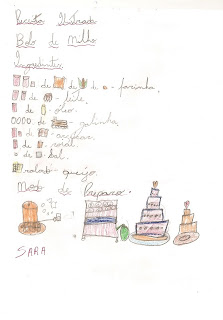 Receita Ilustrada
Bolo de Milho
Ingredientes
de de farinha.
de leite.
de óleo.
de galinha.
de açúcar.
de
de sal.
ralado queijo.
Modo de Preparo.
SARA